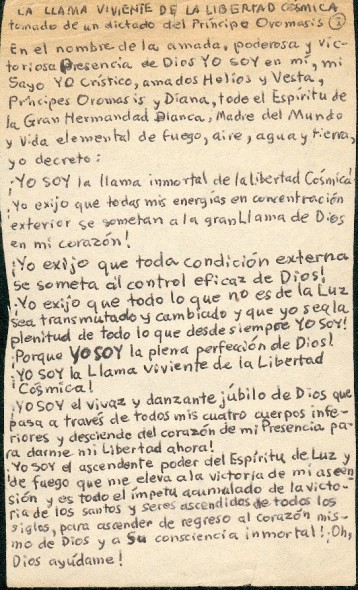 LA LLAMA VIVIENTE DE LA LIBERTAD CÓSMICA
tomado de un dictado del Príncipe Oromasis
En el nombre de la amada, poderosa y vic-
toriosa Presencia de Dios YO SOY en mí, mi
Sayo YO Crístico, amados Helios y Vesta,
Príncipes Oromasis y Diana, todo el Espíritu de
la Gran Hermandad Blanca, Madre del Mundo
y Vida elemental de fuego, aire, agua y tierra,
yo decreto:
¡YO SOY la llama inmortal de la libertad Cósmica!
¡Yo exijo que todas mis energías en concentración
exterior se sometan a la gran Llama de Dios
en mi corazón!
¡Yo exijo que toda condición externa
se someta al control eficaz de Dios!
¡Yo exijo que todo lo que no es de la Luz
sea transmutado y cambiado y que yo sea la
plenitud de todo lo que desde siempre YO SOY!
¡Porque YO SOY la plena perfección de Dios!
¡YO SOY la Llama Viviente de la Libertad
Cósmica!
¡YO SOY el vivaz y danzante júbilo de Dios que
pasa a través de todos mis cuatro cuerpos infe-
riores y desciende del corazón de mi Presencia pa-
ra darme mi Libertad ahora!
¡Yo SOY el ascendente poder del Espíritu de Luz y
de fuego que me eleva a la victoria de mi ascen
sión y es todo el ímpetu acumulado de la victo-
ria de los santos y seres ascendidos de todos los
siglos, para ascender de regreso al corazón mis-
mo de Dios y a Su consciencia inmortal! ¡Oh,
Dios ayúdame!